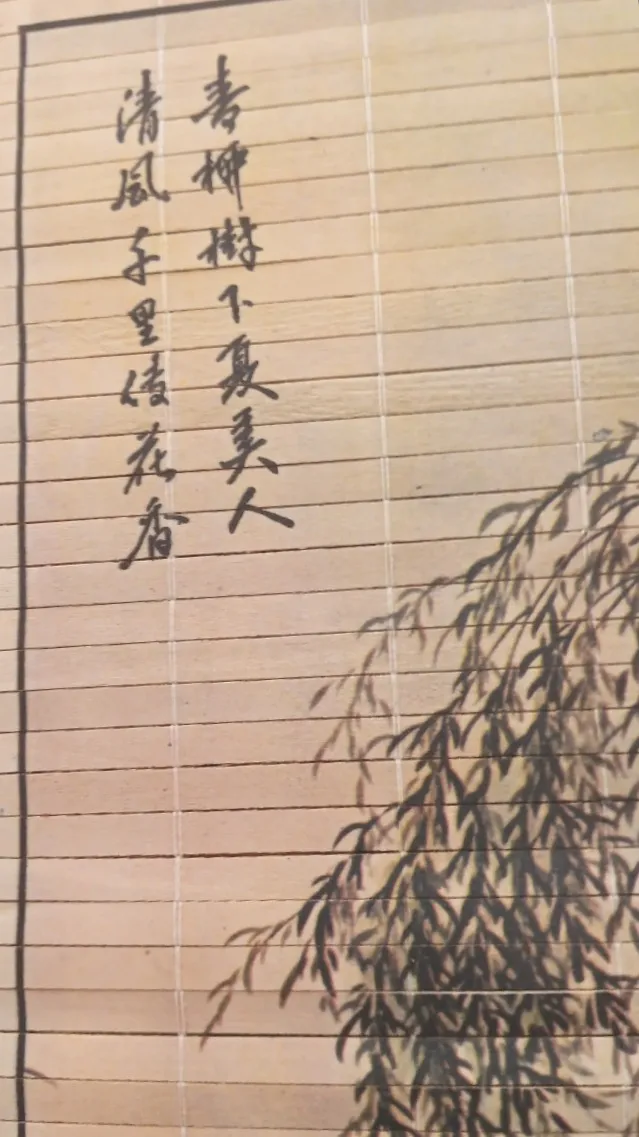 青柳樹下夏美人
清風千里傳花香